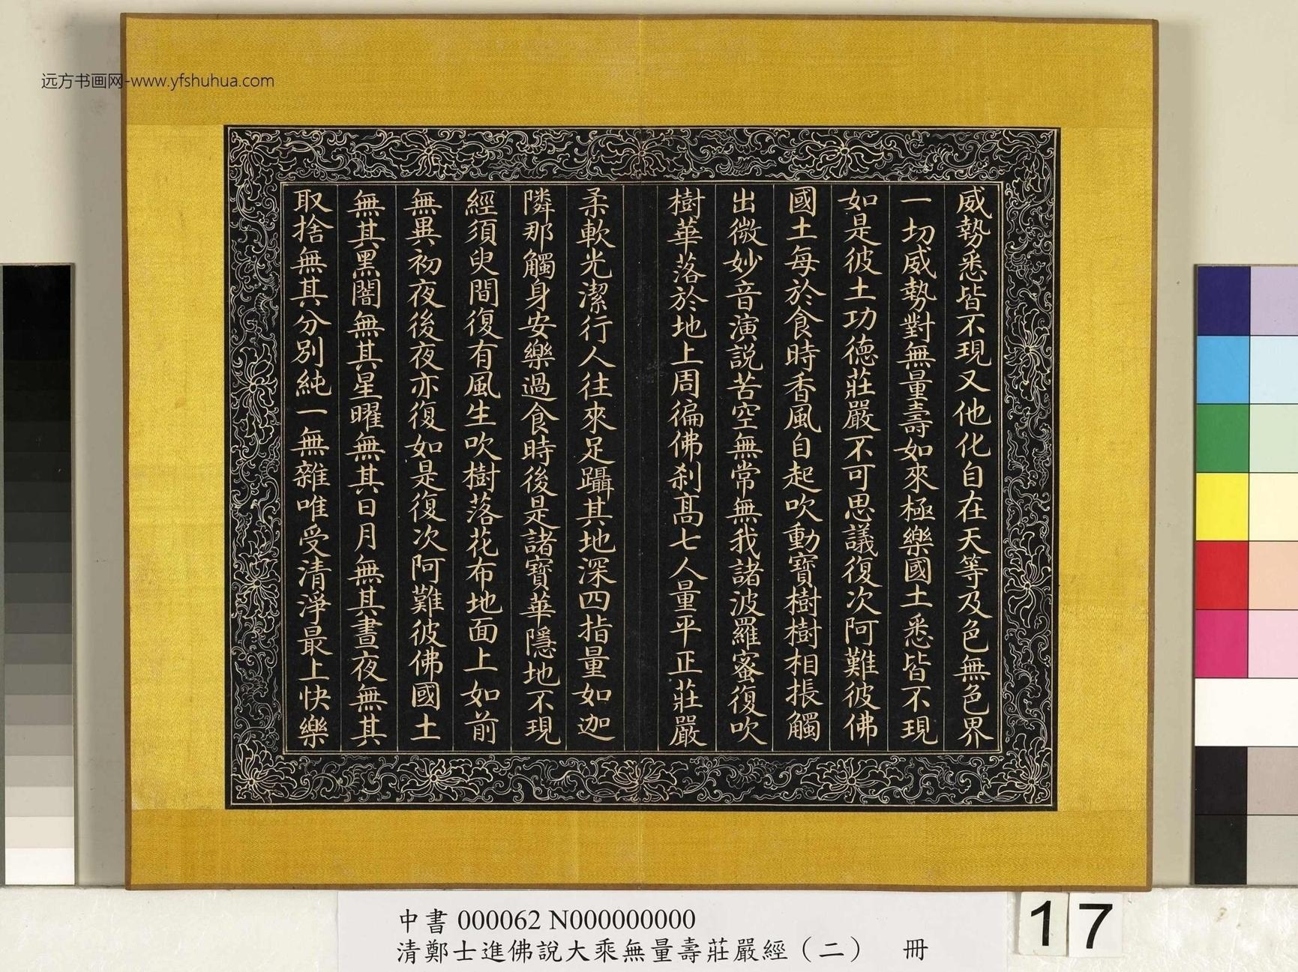 远方书画网-www.yfshuhua.com
威勢悉皆不現又他化自在天等及色無色界
一切威勢對無量壽如來極樂國土悉皆不現
如是彼土功德莊嚴不可思議復次阿難彼佛
國土每於食時香風自起吹動寶樹樹相掁觸
出微妙音演說苦空無常無我諸波羅蜜復吹
樹華落於地上周徧佛刹高七人量平正莊嚴
柔軟光潔行人往來足躡其地深四指量如迦
隣那觸身安樂過食時後是諸寶華隱地不現
經須臾間復有風生吹樹落花布地面上如前
無異初夜後夜亦復如是復次阿難彼佛國土
無其黑闇無其星曜無其日月無其晝夜無其
取捨無其分別純一無雜唯受清淨最上快樂
中書 000062 N000000000
清鄭士進佛說大乘無量壽莊嚴經（二） 冊
17